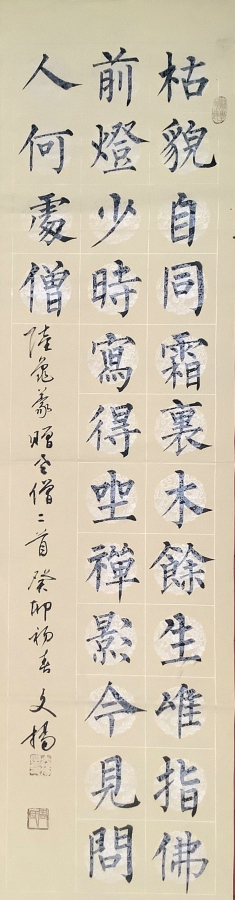 枯貌自同霜裏木餘生唯指佛
前燈少時寫得坐禪影今見問
人何處僧
陸龜蒙贈老僧二首癸卯初春文揚